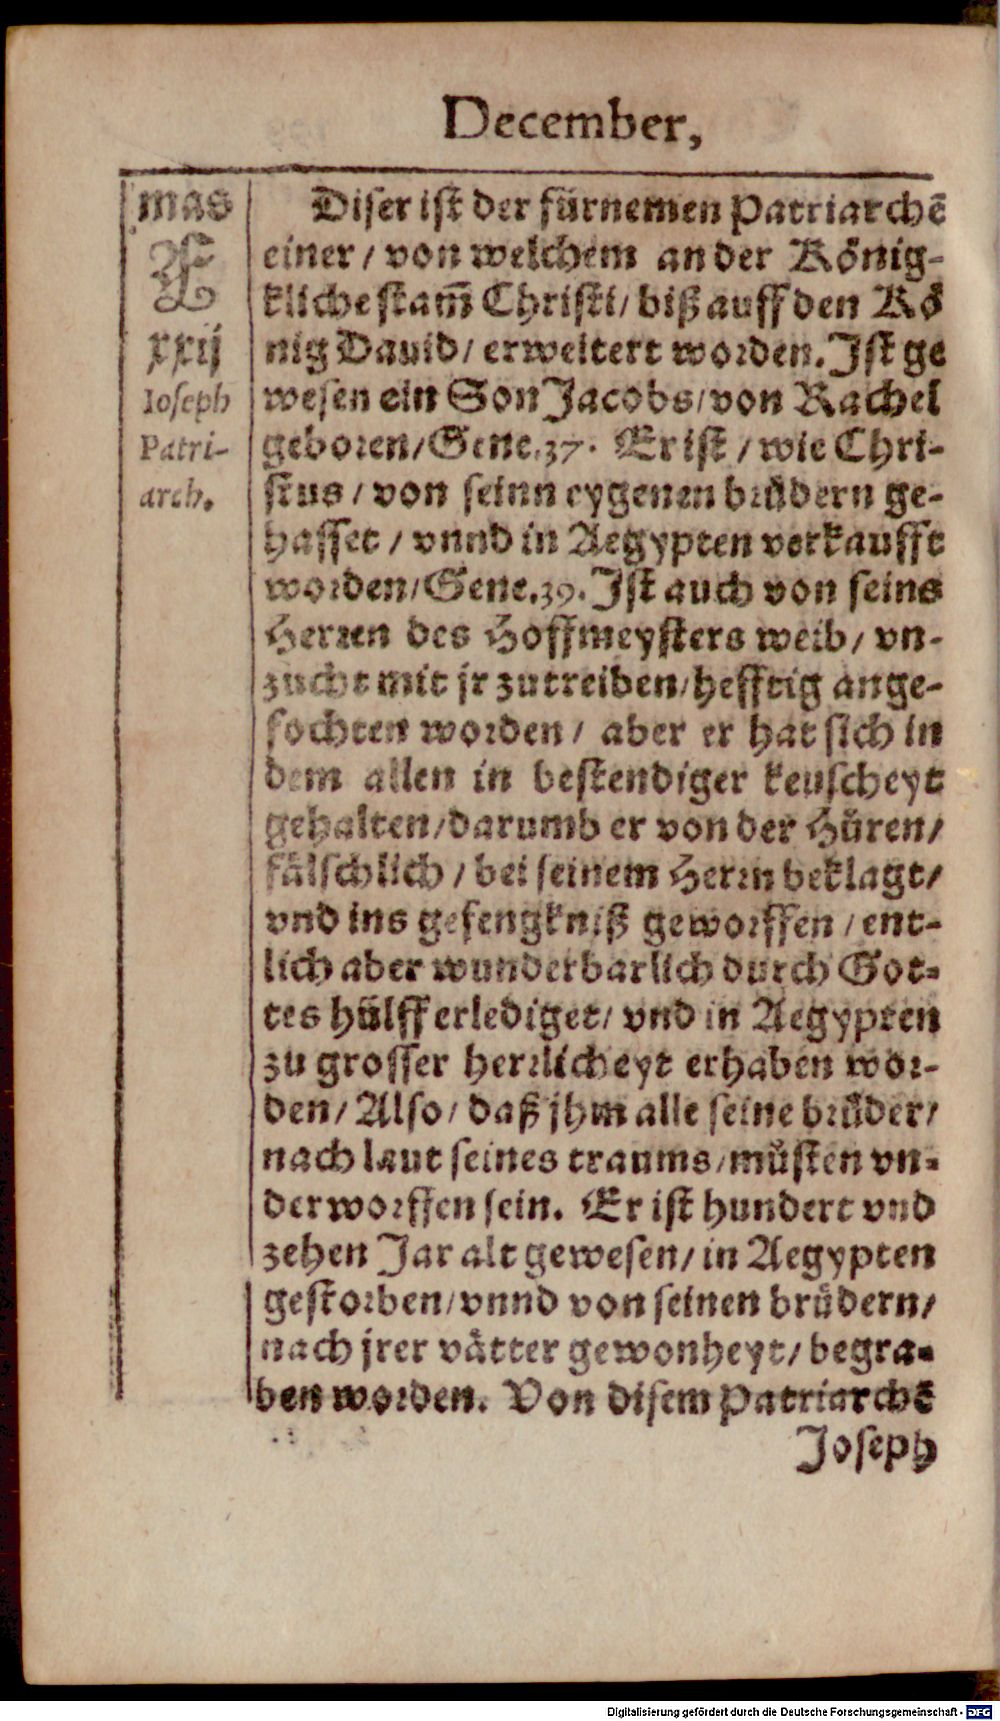 December,
mas
F
xxij
Ioseph
Patri-
arch.
Diser ist der fürnemen Patriarchẽ
einer / von welchem an der König-
kliche stam̃ Christi / biß auff den Kö
nig Dauid / erweitert worden. Ist ge
wesen ein Son Jacobs / von Rachel
geboren / Gene. 37. Er ist / wie Chri-
stus / von seinn eygenen brüdern ge-
hasset / vnnd in Aegypten verkaufft
worden / Gene. 39. Ist auch von seins
Herren des Hoffmeysters weib / vn-
zucht mit jr zutreiben / hefftig ange-
fochten worden / aber er hat sich in
dem allen in bestendiger keuscheyt
gehalten / darumb er von der Hůren /
fälschlich / bei seinem Herrn beklagt /
vnd ins gefengkniß geworffen / ent-
lich aber wunderbarlich durch Got-
tes hülff erlediget / vnd in Aegypten
zu grosser herrlicheyt erhaben wor-
den / Also / daß jhm alle seine brüder /
nach laut seines traums / müsten vn-
derworffen sein. Er ist hundert vnd
zehen Jar alt gewesen / in Aegypten
gestorben / vnnd von seinen brüdern /
nach jrer vätter gewonheyt / begra-
ben worden. Von disem Patriarchẽ
Joseph
Digitalisierung gefördert durch die Deutsche Forschungsgemeinschaft - DFG